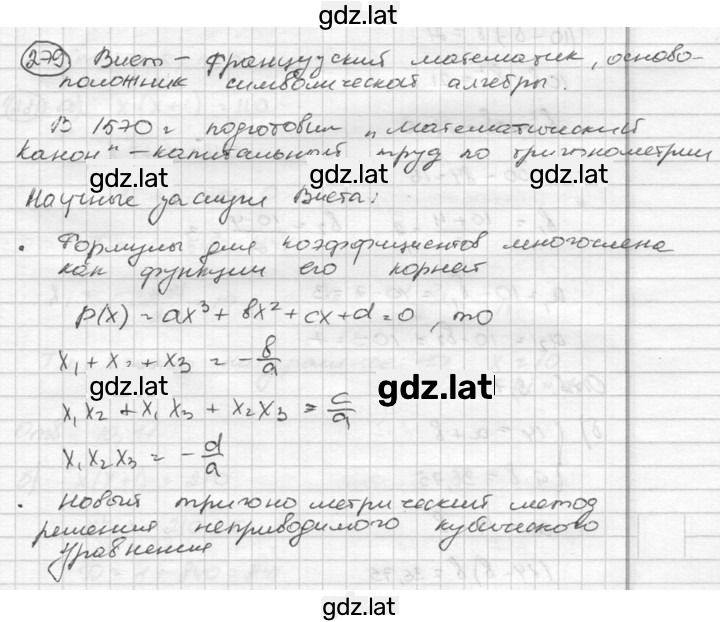 gdz.lat
279 Виет – французский математик, осново-
положник символической алгебры.
В 1570 г подготовил „Математический
Канон" – капитальный труд по тригонометрии
gdz.lat gdz.lat gdz.lat
Научные заслуги Виета:
• Формулы для коэффициентов многочлена
как функции его корней
P(x) = ax³ + bx² + cx + d = 0, то
x₁ + x₂ + x₃ = - b/a
gdz.lat gdz.lat
x₁x₂ + x₁x₃ + x₂x₃ = c/a
x₁x₂x₃ = - d/a
• Новый тригонометрический метод
решения неприводимого кубического
уравнения
gdz.lat